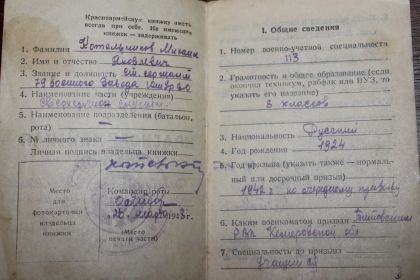 Красноармейскую книжку иметь
всегда при себе. Не имеющих
книжек — задерживать
1. Фамилия Котельников Михаил
2. Имя и отчество Яковлевич
3. Звание и должность ст. сержант
4. Наименование части (учреждения)
5. Наименование подразделения (батальон,
рота) —
6. № личного знака —
Личная подпись владельца книжки
Место
для
фотокарточки
владельца
книжки
Командир роты
(Место
печати части)
I. Общие сведения
1. Номер военно-учетной специальности
113
2. Грамотность и общее образование (если
окончил техникум, рабфак или ВУЗ, то
указать его название)
8 классов
3. Национальность Русский
4. Год рождения 1924
5. Год призыва (указать также — нормаль-
ный или досрочный призыв)
1942 г по очередному призыву
6. Каким военкоматом призван
РВК Кемеровской обл
7. Специальность до призыва
Учащийся